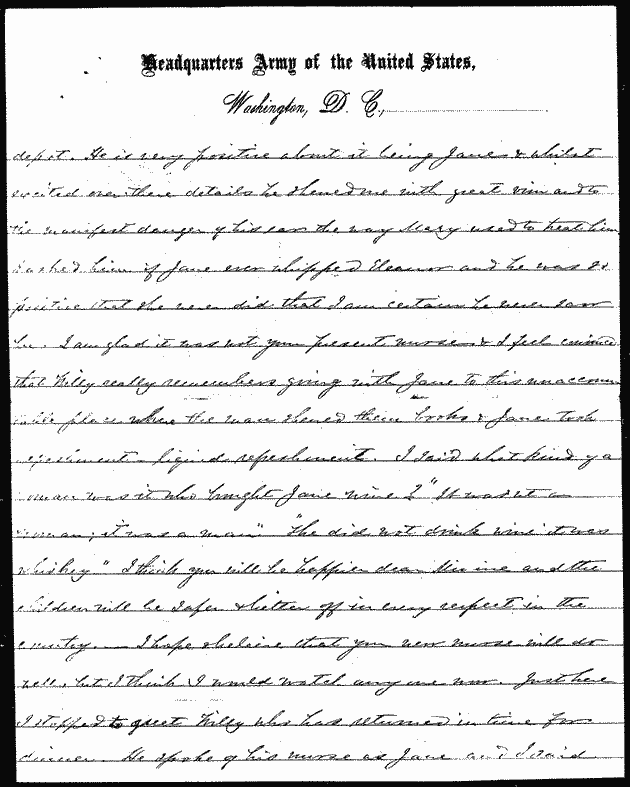 Headquarters Army of the United States,
Washington, D. C.,
depot. He is very positive about it being Jane & whilst
excited over these details he showed me with great vim and to
the manifest danger of his ears the way Mary used to treat him
I asked him if Jane ever whipped Eleanor and he was so
positive that she never did that I am certain he never saw
her. I am glad it was not your present nurse & I feel
that Willy really remembers going with Jane to this
place where the man showed them books & Jane took
refreshment - liquid refreshment. I said what kind of a
woman was it who bought Jane wine? "It was not a
woman; it was a man" "She did not drink wine it was
whiskey" I think you will be happier dear Minnie and the
children will be safer & better off in every respect in the
country. — I hope & believe that your new nurse will do
well, but I think I would watch any one now. Just here
I stopped to greet Willy who has returned in time for
dinner. He spoke of his nurse as Jane and I said